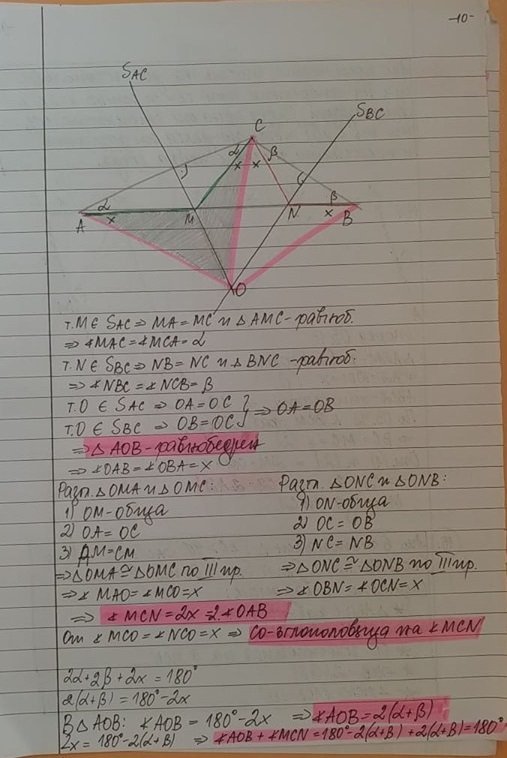 -10-
SAC
SBC
C
α β
x x
α β
x x
A M N B
O
т.M ∈ SAC ⇒ MA = MC и △AMC - равноб.
⇒ ∢MAC = ∢MCA = α
т.N ∈ SBC ⇒ NB = NC и △BNC - равноб.
⇒ ∢NBC = ∢NCB = β
т.O ∈ SAC ⇒ OA = OC } ⇒ OA = OB
т.O ∈ SBC ⇒ OB = OC
⇒ △AOB - равнобедрен
⇒ ∢OAB = ∢OBA = x
Разгл. △OMA и △OMC:
1) OM - обща
2) OA = OC
3) AM = CM
⇒ △OMA ≅ △OMC по III пр.
⇒ ∢MAO = ∢MCO = x
Разгл. △ONC и △ONB:
1) ON - обща
2) OC = OB
3) NC = NB
⇒ △ONC ≅ △ONB по III пр.
⇒ ∢OBN = ∢OCN = x
⇒ ∢MCN = 2x = 2.∢OAB
От ∢MCO = ∢NCO = x ⇒ CO - ъглополовяща на ∢MCN
2α + 2β + 2x = 180°
2(α+β) = 180° - 2x
В △AOB: ∢AOB = 180° - 2x ⇒ ∢AOB = 2(α+β)
2x = 180° - 2(α+β) ⇒ ∢AOB + ∢MCN = 180° - 2(α+β) + 2(α+β) = 180°